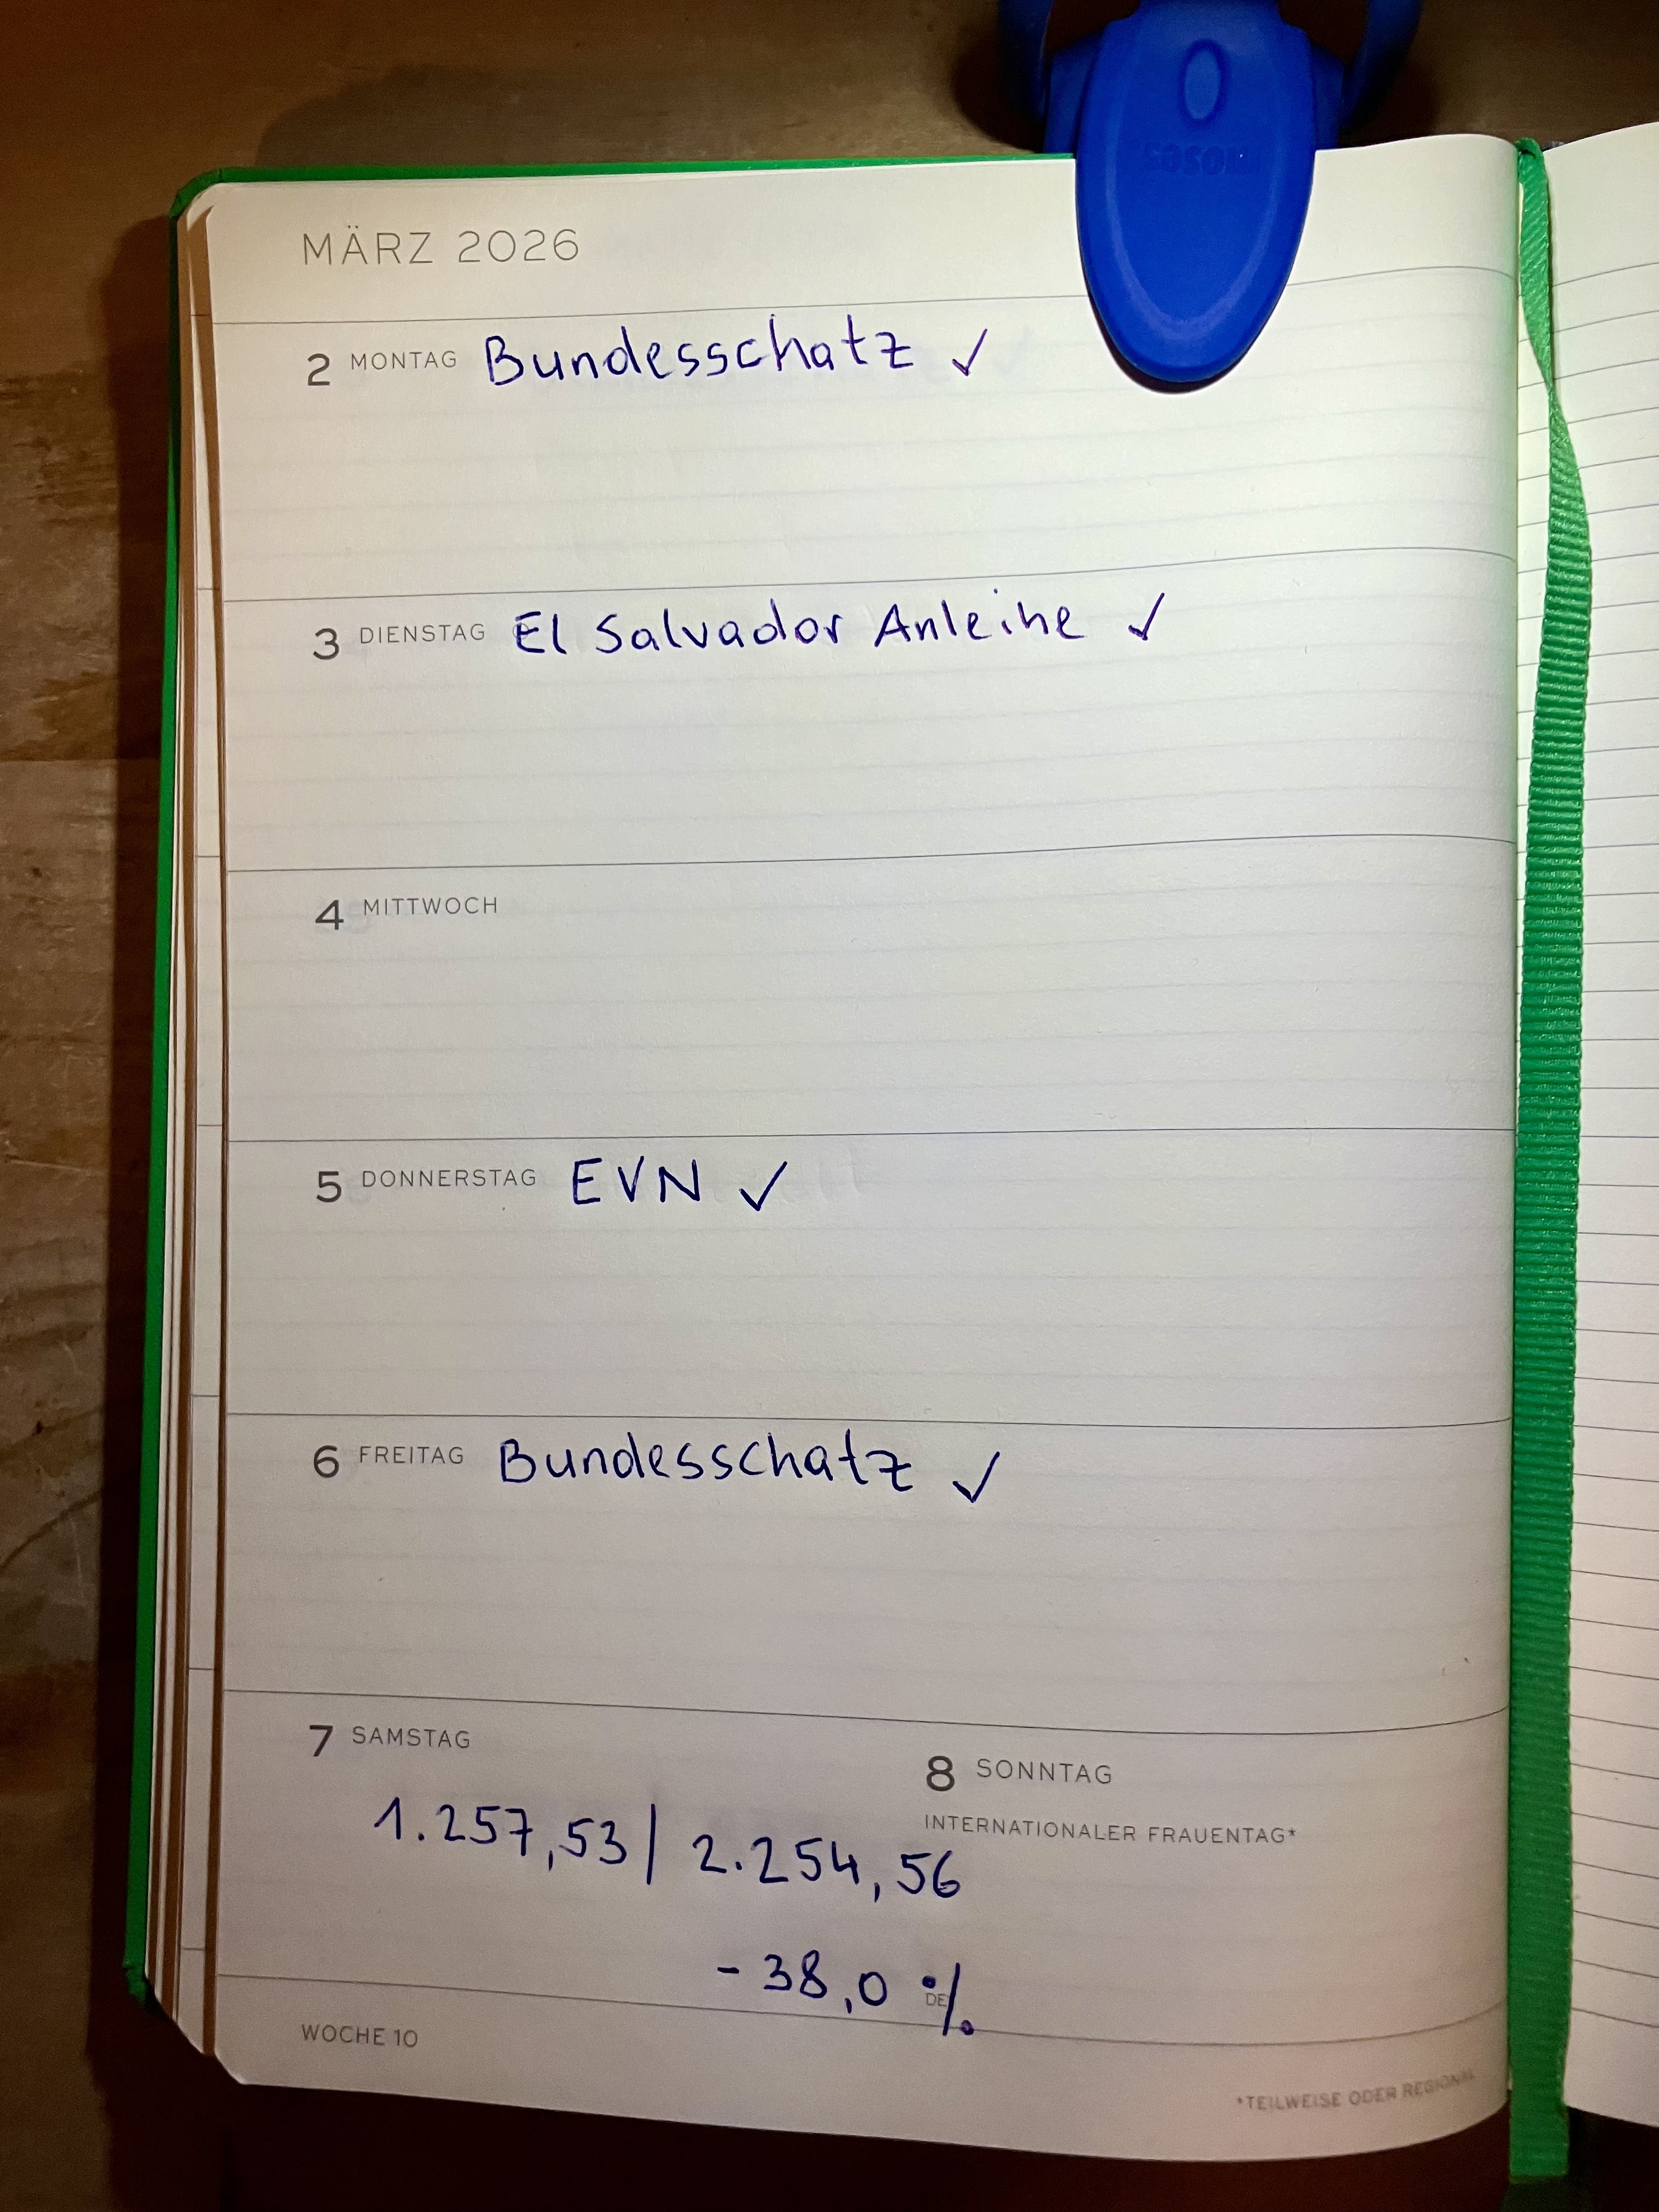 mosos
MÄRZ 2026
2 MONTAG Bundesschatz ✓
3 DIENSTAG El Salvador Anleihe ✓
4 MITTWOCH
5 DONNERSTAG EVN ✓
6 FREITAG Bundesschatz ✓
7 SAMSTAG
1.257,53 | 2.254,56
- 38,0 %
8 SONNTAG
INTERNATIONALER FRAUENTAG*
DE
WOCHE 10
*TEILWEISE ODER REGIONAL